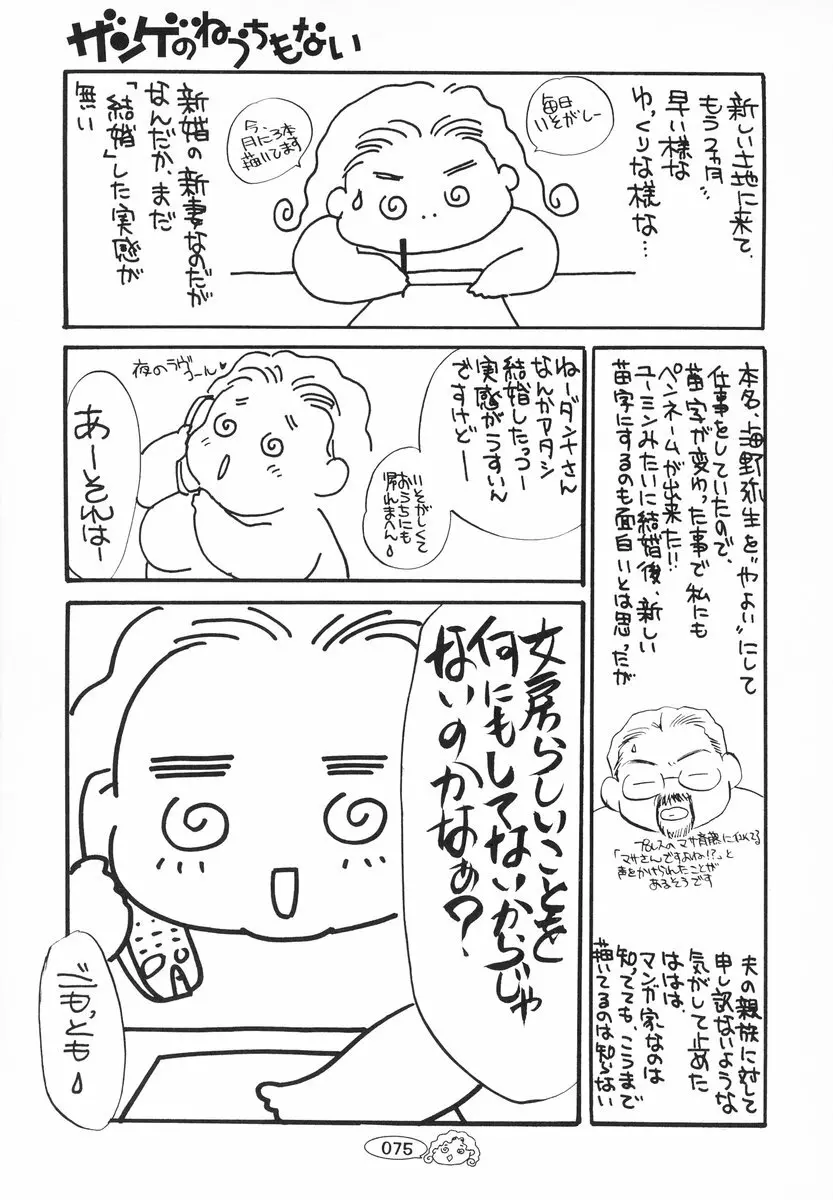 ザンゲのねうちもない
新しい土地に来て、
もう2ヵ月
早い様な
ゆっくりな様な…
毎日
いそがしー
今、
月に3本
描いてます
新婚の新妻なのだが
なんだか、まだ
「結婚」した実感が
無い
本名、海野弥生を“やよい”にして
仕事をしていたので、
苗字が変わった事で私にも
ペンネームが出来た!!
ユーミンみたいに結婚後、新しい
苗字にするのも面白いとは思ったが
プロレスのマサ斉藤に似てる
「マサさんですよね!?」と
声をかけられたことが
あるそうです
夫の親族に対して
申し訳ないような
気がして止めた
ははは、
マンガ家なのは
知ってても、こうまで
描いてるのは知らない
ねーダンナさん
なんかアタシ
結婚したっつー
実感がうすいん
ですけどー
いそがしくて
おうちにも
帰れまへん
夜のラヴ
コーん♥
あーそれはー
女房らしいことを
何にもしてないからじゃ
ないのかなぁ?
ごもっとも
075